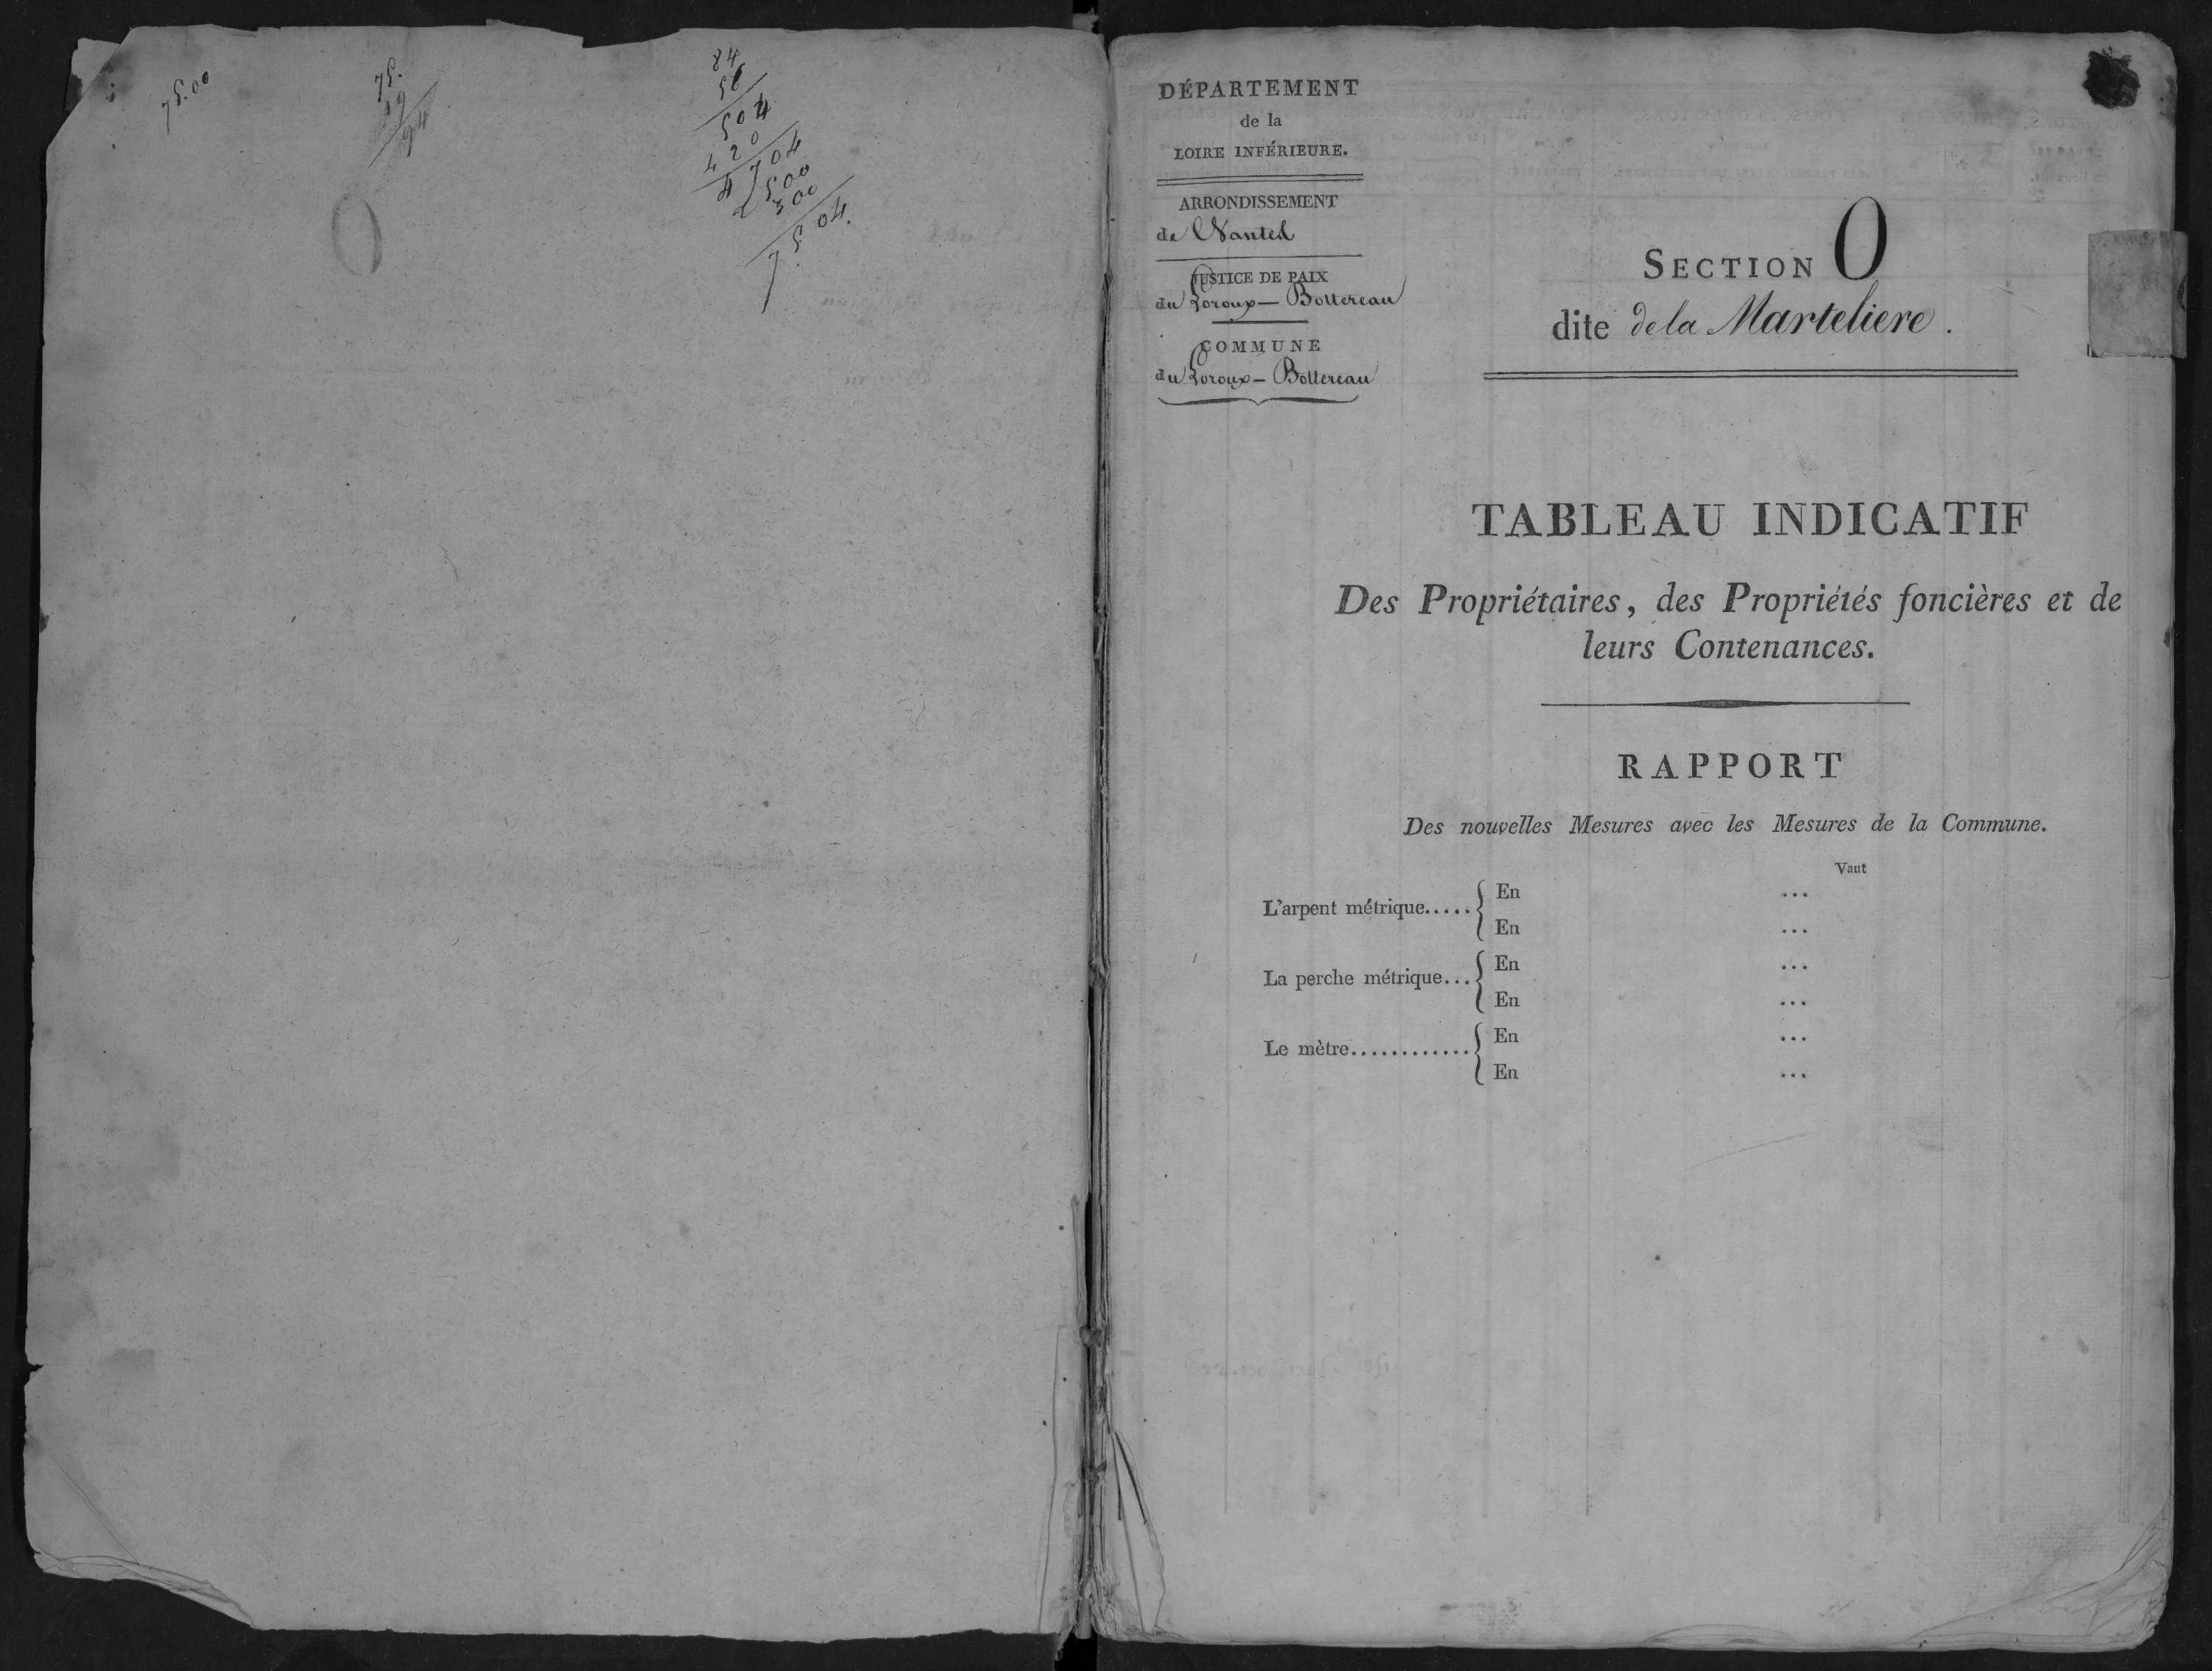 75.00
75.
19
94
84
56
504
420
4704
2500
300
75.04.
DÉPARTEMENT
de la
LOIRE INFÉRIEURE.
ARRONDISSEMENT
de Nantes
JUSTICE DE PAIX
du Loroux-Bottereau
COMMUNE
du Loroux-Bottereau
SECTION O
dite de la Marteliere.
TABLEAU INDICATIF
Des Propriétaires, des Propriétés foncières et de
leurs Contenances.
RAPPORT
Des nouvelles Mesures avec les Mesures de la Commune.
Vaut
L'arpent métrique..... { En ...
En ...
La perche métrique... { En ...
En ...
Le mètre............. { En ...
En ...